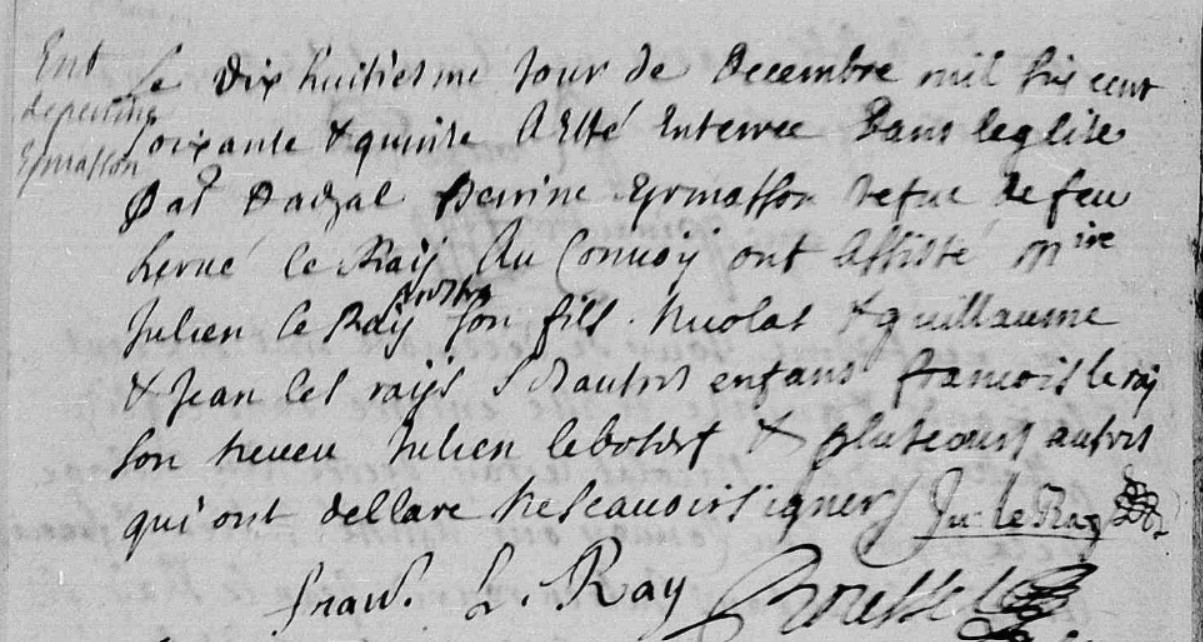 Ent
de perrine
Eprmasson
Le Dix huitiesme Jour de Decembre mil six cent
soixante & quinse A Esté Enterree Dans leglise
Perrine Eprmasson vefue de feu
hervé le Raÿ Au Conuoÿ ont Assisté mire
Julien le Raÿ prestre son fils. Nicolas & guillaume
& Jean les raÿs autres enfans francois le raÿ
son neueu Julien & plusieurs autres
qui ont dellare ne scauoir signer Ju: le Ray
fran. L. Ray